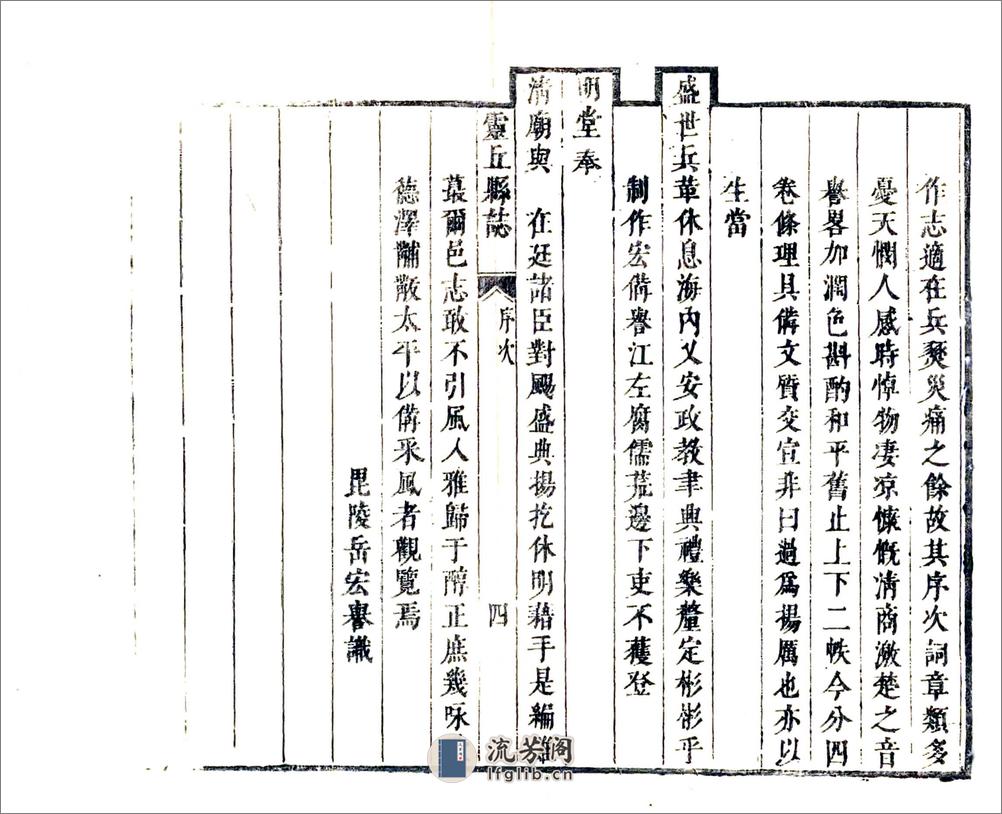 作志適在兵燹災痛之餘故其序次詞章類多
憂天憫人感時悼物凄凉慷慨淸商激楚之音
譽畧加潤色斟酌和平舊止上下二帙今分四
卷條理具備文質交宣非曰過爲揚厲也亦以
生當
盛世兵革休息海內乂安政教聿興禮樂釐定彬彬乎
制作宏備譽江左腐儒荒邊下吏不獲登
明堂奉
淸廟與 在廷諸臣對颺盛典揚扢休明藉手是編雖
靈丘縣誌 序次 四
蕞爾邑志敢不引風人雅歸于醇正庶幾咏
德澤黼黻太平以備采風者觀覽焉
毘陵岳宏譽識
流芳閣
lfglib.cn